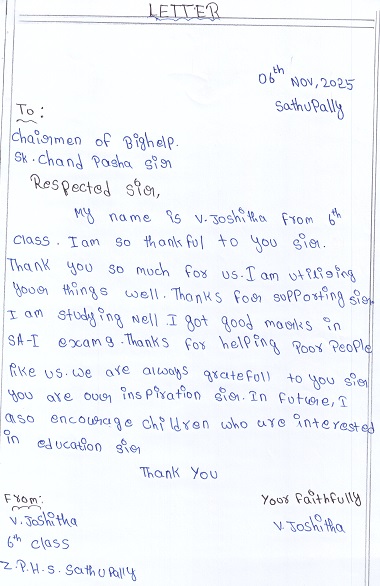 LETTER
06th Nov, 2025
Sathupally
To:
Chairmen of Bighelp.
Sk. Chand Pasha sir
Respected sir,
My name is V. Joshitha from 6th
class. I am so thankful to you sir.
Thank you so much for us. I am utilising
your things well. Thanks for supporting sir
I am studying well. I got good marks in
SA-I exams. Thanks for helping Poor People
like us. we are always gratefull to you sir
you are our inspiration sir. In future, I
also encourage children who are interested
in education sir
Thank You
From:
Your Faithfully
V. Joshitha
V. Joshitha
6th class
Z.P.H.S. Sathupally